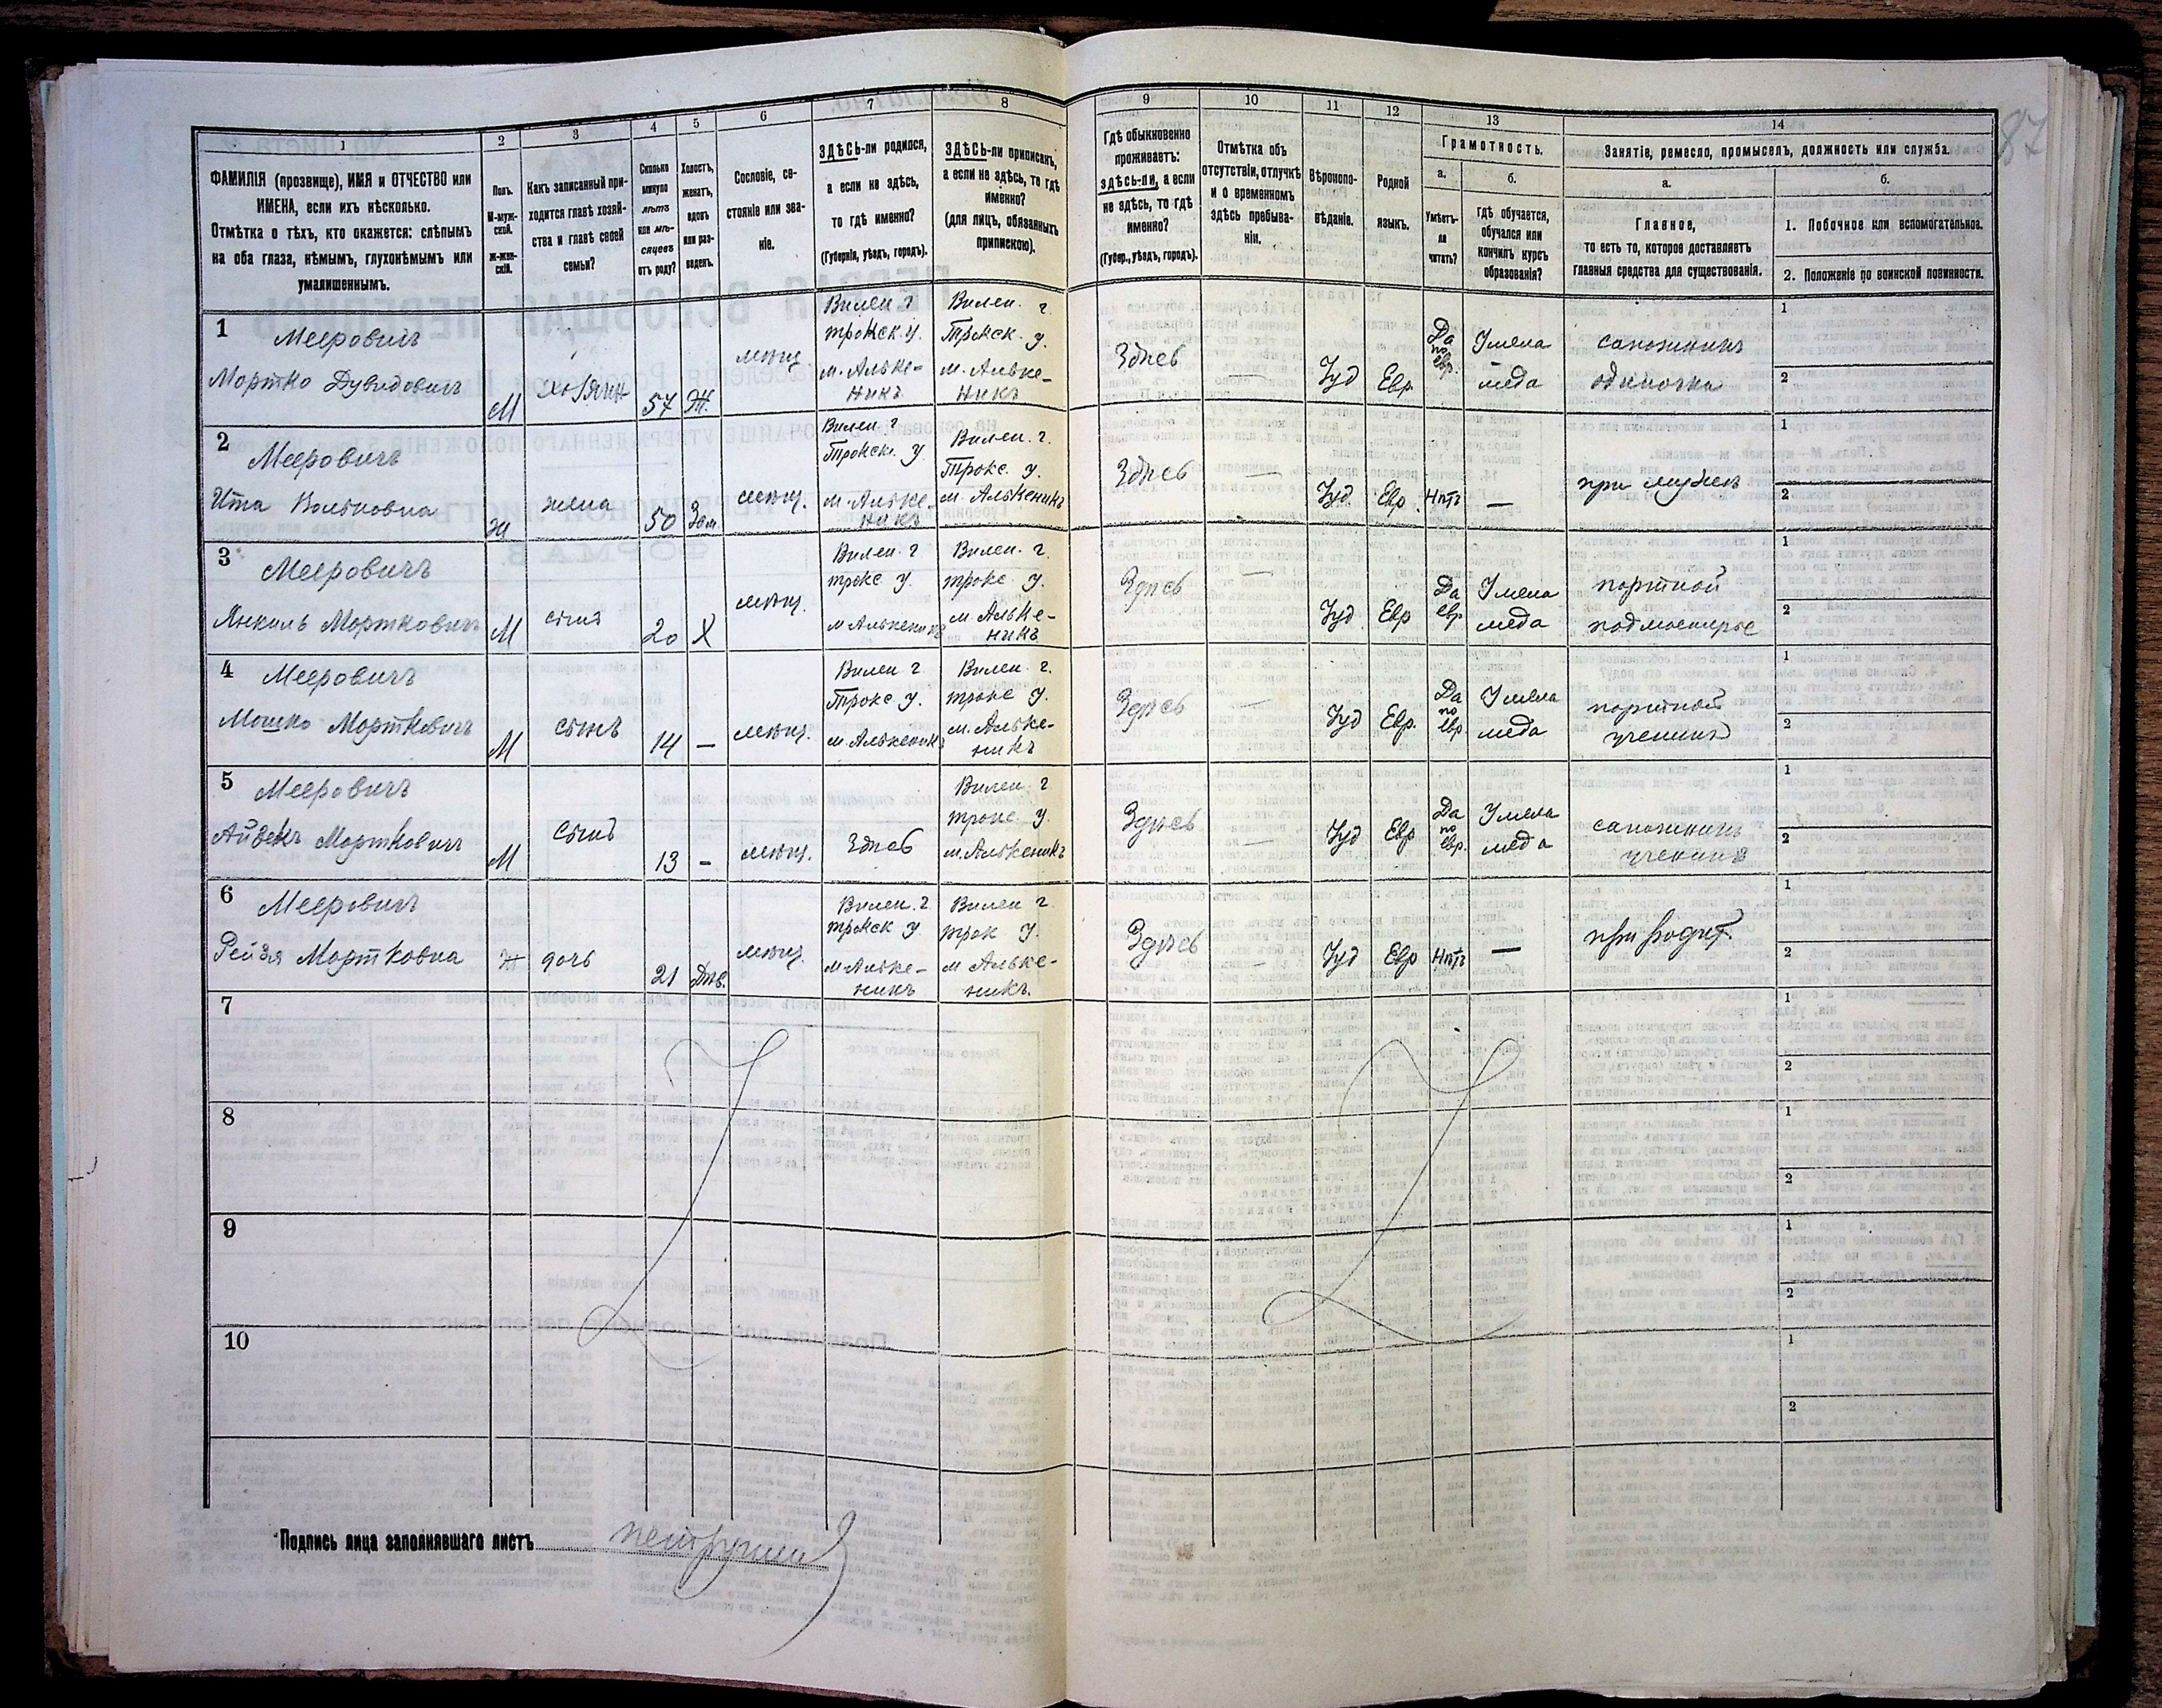 87
1 2 3 4 5 6 7 8 9 10 11 12 13 14
ФАМИЛІЯ (прозвище), ИМЯ и ОТЧЕСТВО или
ИМЕНА, если ихъ нѣсколько.
Отмѣтка о тѣхъ, кто окажется: слѣпымъ
на оба глаза, нѣмымъ, глухонѣмымъ или
умалишеннымъ.
Полъ.
М-муж-
ской.
Ж-жен-
скій.
Какъ записанный при-
ходится главѣ хозяй-
ства и главѣ своей
семьи?
Сколько
минуло
лѣтъ
или мѣ-
сяцевъ
отъ роду?
Холостъ,
женатъ,
вдовъ
или раз-
веденъ.
Сословіе, со-
стояніе или зва-
ніе.
ЗДѢСЬ-ли родился,
а если не здѣсь,
то гдѣ именно?
(Губернія, уѣздъ, городъ).
ЗДѢСЬ-ли приписанъ,
а если не здѣсь, то гдѣ
именно?
(для лицъ, обязанныхъ
припискою).
Гдѣ обыкновенно
проживаетъ:
здѣсь-ли, а если
не здѣсь, то гдѣ
именно?
(Губер., уѣздъ, городъ).
Отмѣтка объ
отсутствіи, отлучкѣ
и о временномъ
здѣсь пребыва-
ніи.
Вѣроиспо-
вѣданіе.
Родной
языкъ.
Грамотность.
а.
Умѣетъ-
ли
читать?
б.
Гдѣ обучается,
обучался или
кончилъ курсъ
образованія?
Занятіе, ремесло, промыселъ, должность или служба.
а.
Главное,
то есть то, которое доставляетъ
главныя средства для существованія.
б.
1. Побочное или вспомогательное.
2. Положеніе по воинской повинности.
1 Мееровичъ
Мортко Дувидовичъ
М
хозяинъ
57
Ж.
мѣщ
Вилен г
трокск у.
м. Альке-
никъ
Вилен. г.
Трокск. у.
м. Альке-
никъ
Здѣсь
—
Іуд
Евр
Да
по
евр.
У мела
меда
сапожникъ
одиночка
1
2
2 Мееровичъ
Ита Вольковна
Ж
жена
50
Зам.
мѣщ.
Вилен г
Трокск. у
м. Альке-
никъ
Вилен. г.
Трокс. у.
м. Алькеникъ
Здѣсь
—
Іуд
Евр.
Нѣтъ
—
при мужѣ
1
2
3 Мееровичъ
Янкель Мортковичъ
М
сынъ
20
Х
мѣщ.
Вилен. г
трокс у.
м Алькеникъ
Вилен. г.
трокс. у.
м. Альке-
никъ
Здѣсь
—
Іуд
Евр
Да
евр
У мела
меда
портной
подмастерье
1
2
4 Мееровичъ
Мошко Мортковичъ
М
сынъ
14
—
мѣщ.
Вилен г
Трокс у.
м. Алькеникъ
Вилен. г.
трокс у.
м. Альке-
никъ
Здѣсь
—
Іуд
Евр.
Да
по
евр
У мела
меда
портной
ученикъ
1
2
5 Мееровичъ
Айзекъ Мортковичъ
М
сынъ
13
-
мѣщ.
Здѣсь
Вилен. г
трокс у.
м. Алькеникъ
Здѣсь
Іуд
Евр
Да
по
евр.
У мела
меда
сапожникъ
ученикъ
1
2
6 Мееровичъ
Рейзя Мортковна
Ж
дочь
21
Дѣв.
мѣщ.
Вилен. г
трокск у
м Альке-
никъ
Вилен г
трок у.
м Альке-
никъ.
Здѣсь
—
Іуд
Евр
Нѣтъ
—
при родит.
1
2
7
1
2
8
1
2
9
1
2
10
1
2
Подпись лица заполнявшаго листъ